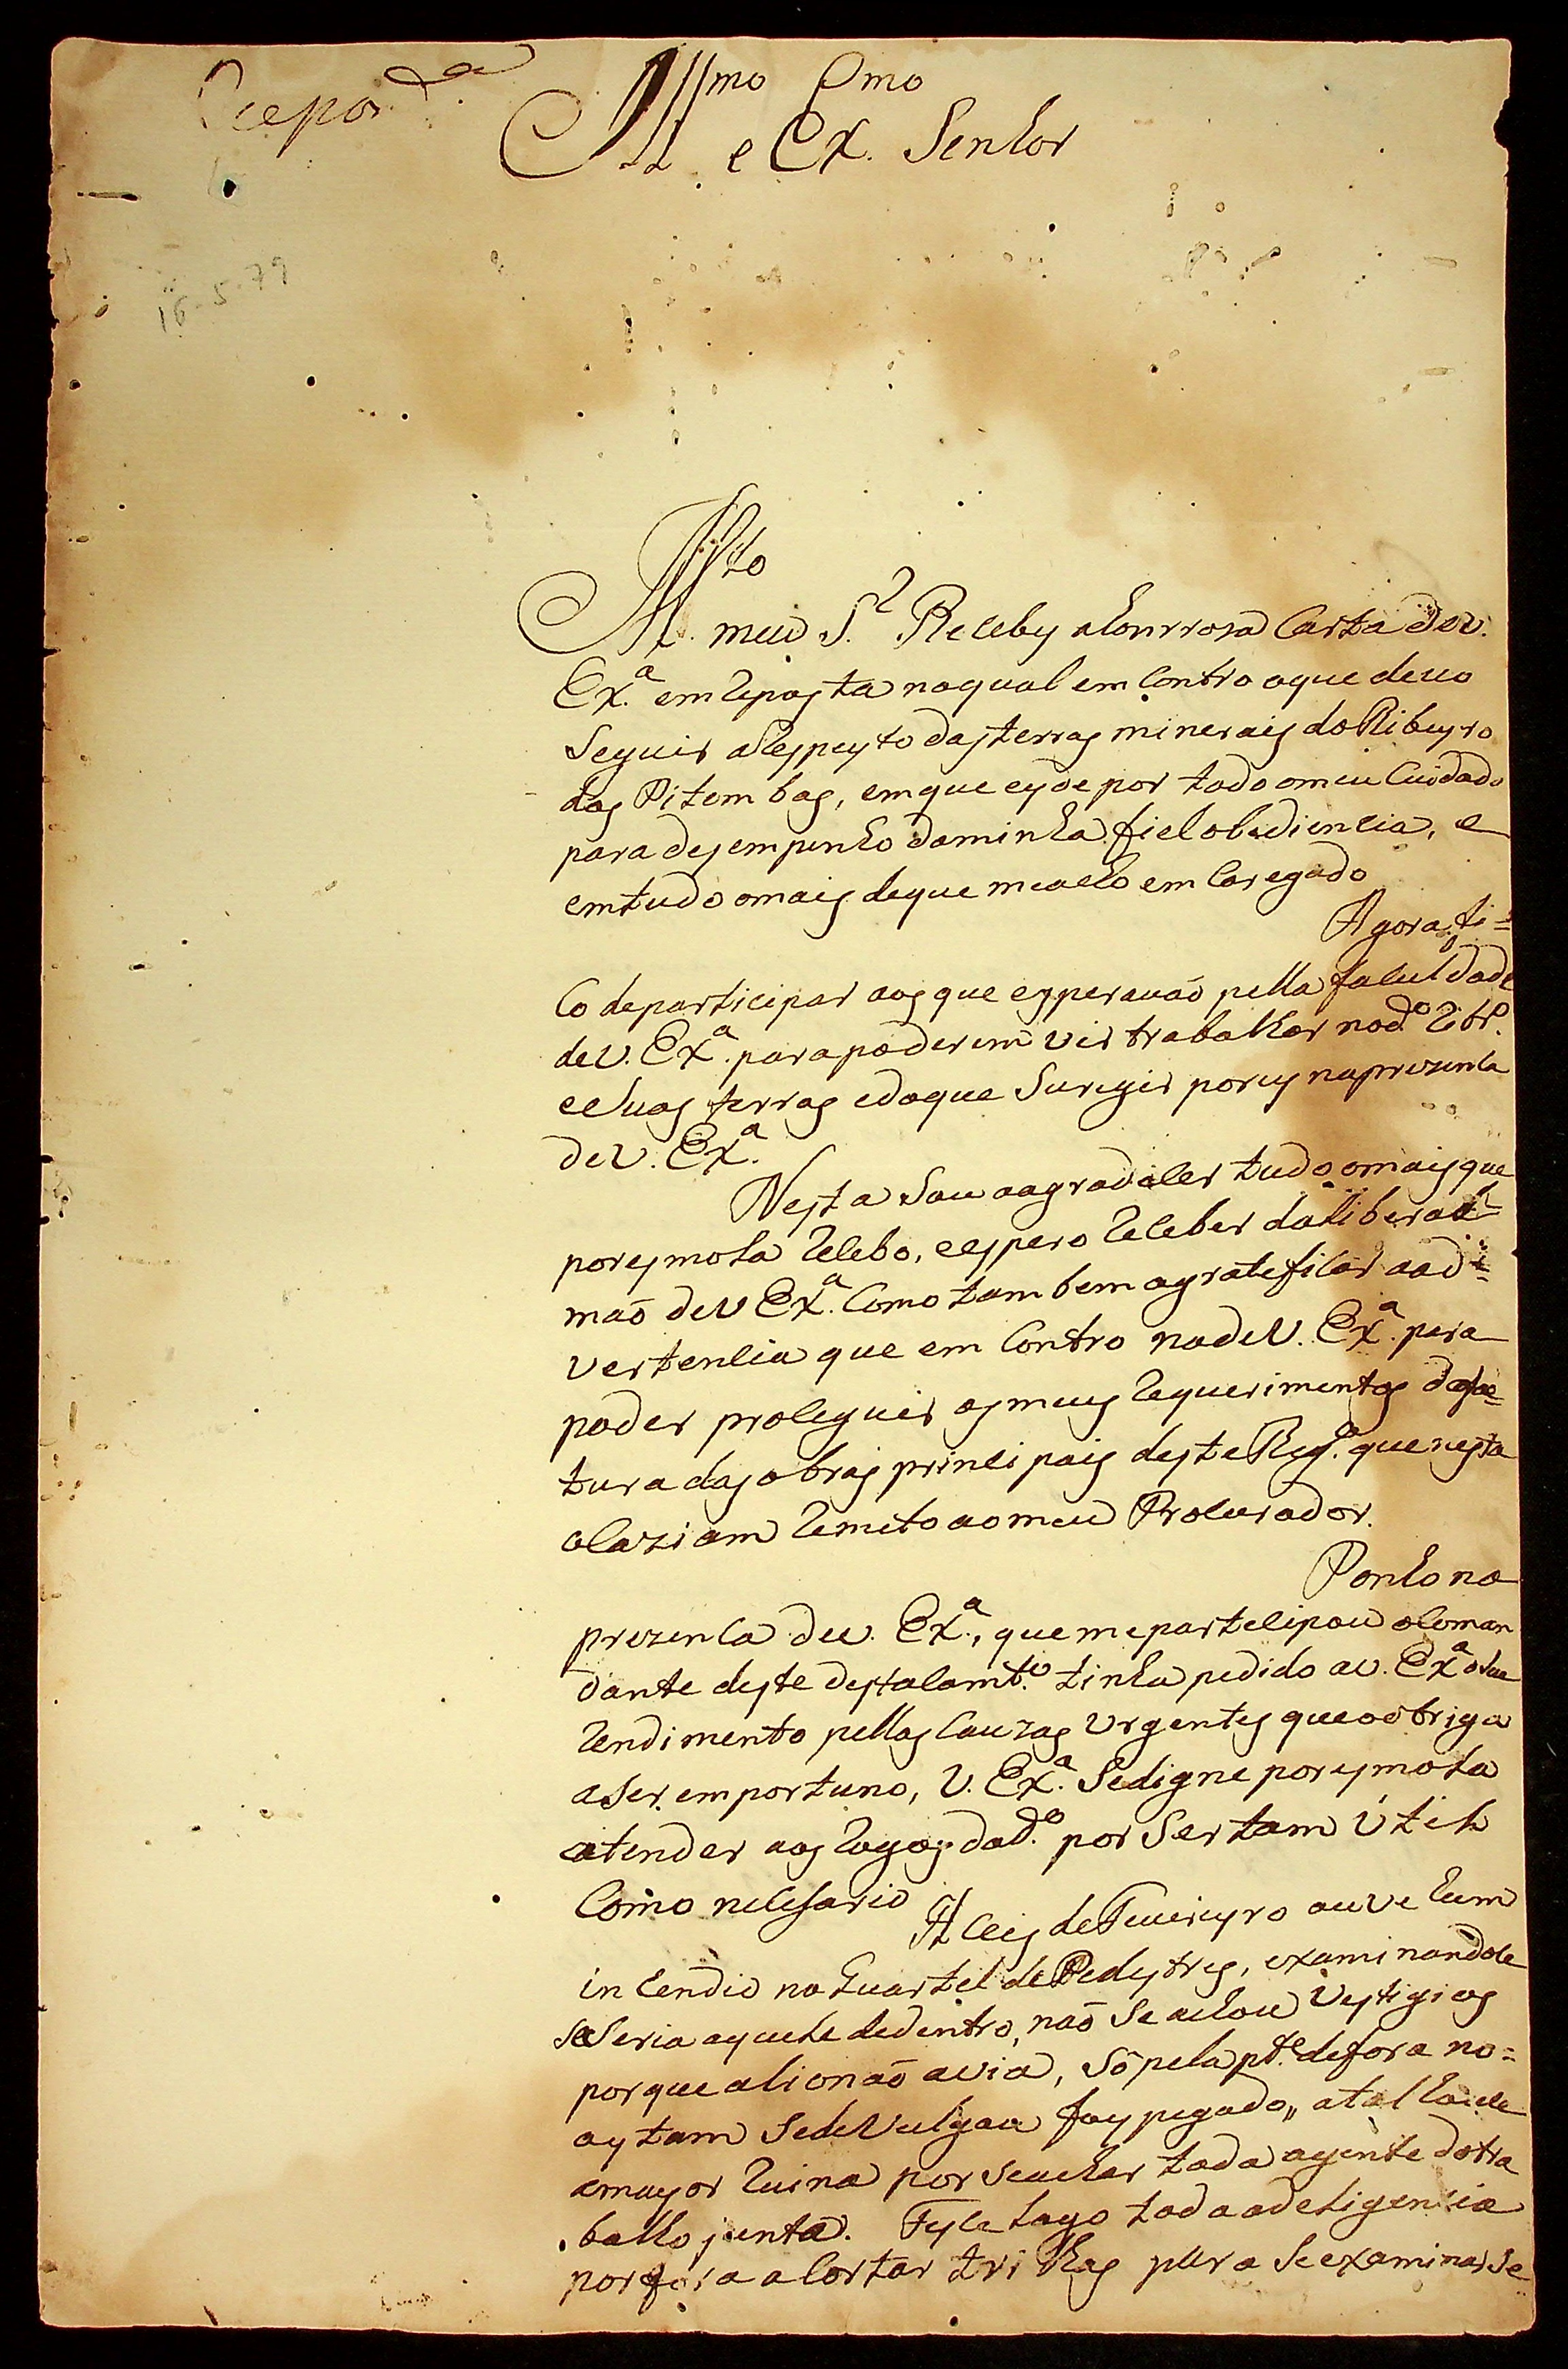 Respond.da
Ill.mo e Ex.mo Senhor
16-5-79
M.to meu S.r Receby ahonrroza Carta de V.
Ex.a em reposta naqual em Contro oque devo
Seguir aRespeyto dasterras minerais do Ribeyro
das Pitombas, emque eyde por todo omeu Cuidado
para dezempenho daminha fiel obediencia, e
emtudo omais deque meacho em Caregado
Agora fi=
Co departicipar aos que esperavaõ pella faculdade
de V. Ex.a para poderem vir trabalhar nod.o Ribr.o
eSuas terras edoque Surgir porey naprezenca
de V. Ex.a
Nesta Sou aagradecer tudo omais que
poresmola Recebo, eespero Receber daliberal
maõ de V Ex.a Como tambem agrateficar aad=
vertencia que em Contro nade V. Ex.a para
poder proceguir osmeus Requerimentos dafa=
tura das obras principais deste Reg.o que nesta
ocaziam Remeto aomeu Procurador.
Ponho na
prezenca de V. Ex.a, que mepartecipou oComan
dante deste destacamt.o tinha pedido a V. Ex.a oSeu
Rendimento pellas Cauzas Urgentes que oobriga
aSer emportuno, V. Ex.a Sedigne poresmola
atender aos Rogos dod.o por Ser tam Util
Como necesario
A Ceis de Fevereyro ouve hum
in Cendio no Quartel de Pedestres, examinandoce
seSeria aquele dedentro, naõ Se achou Vestigios
porque alionaõ avia, Sô pela pt.e defora no=
oytam Sedevulgou foy pegado, atalhouce
amayor Ruina por Seachar toda agente dotra
balho junta. Fyz logo toda adeligencia
porfora a Cortar trilhas para Seexaminar Se